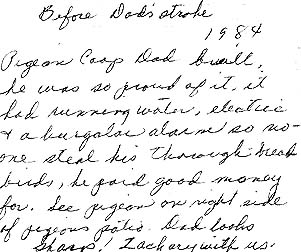 Before Dad's stroke
1984
Pigeon Coop Dad built,
he was so proud of it, it
had running water, electric
& a burgalar alarm so no-
one steal his thorough bread
birds, he paid good money
for. See pigeon on right side
of pigeons patio. Dad looks
Sharp! Zachary with us.